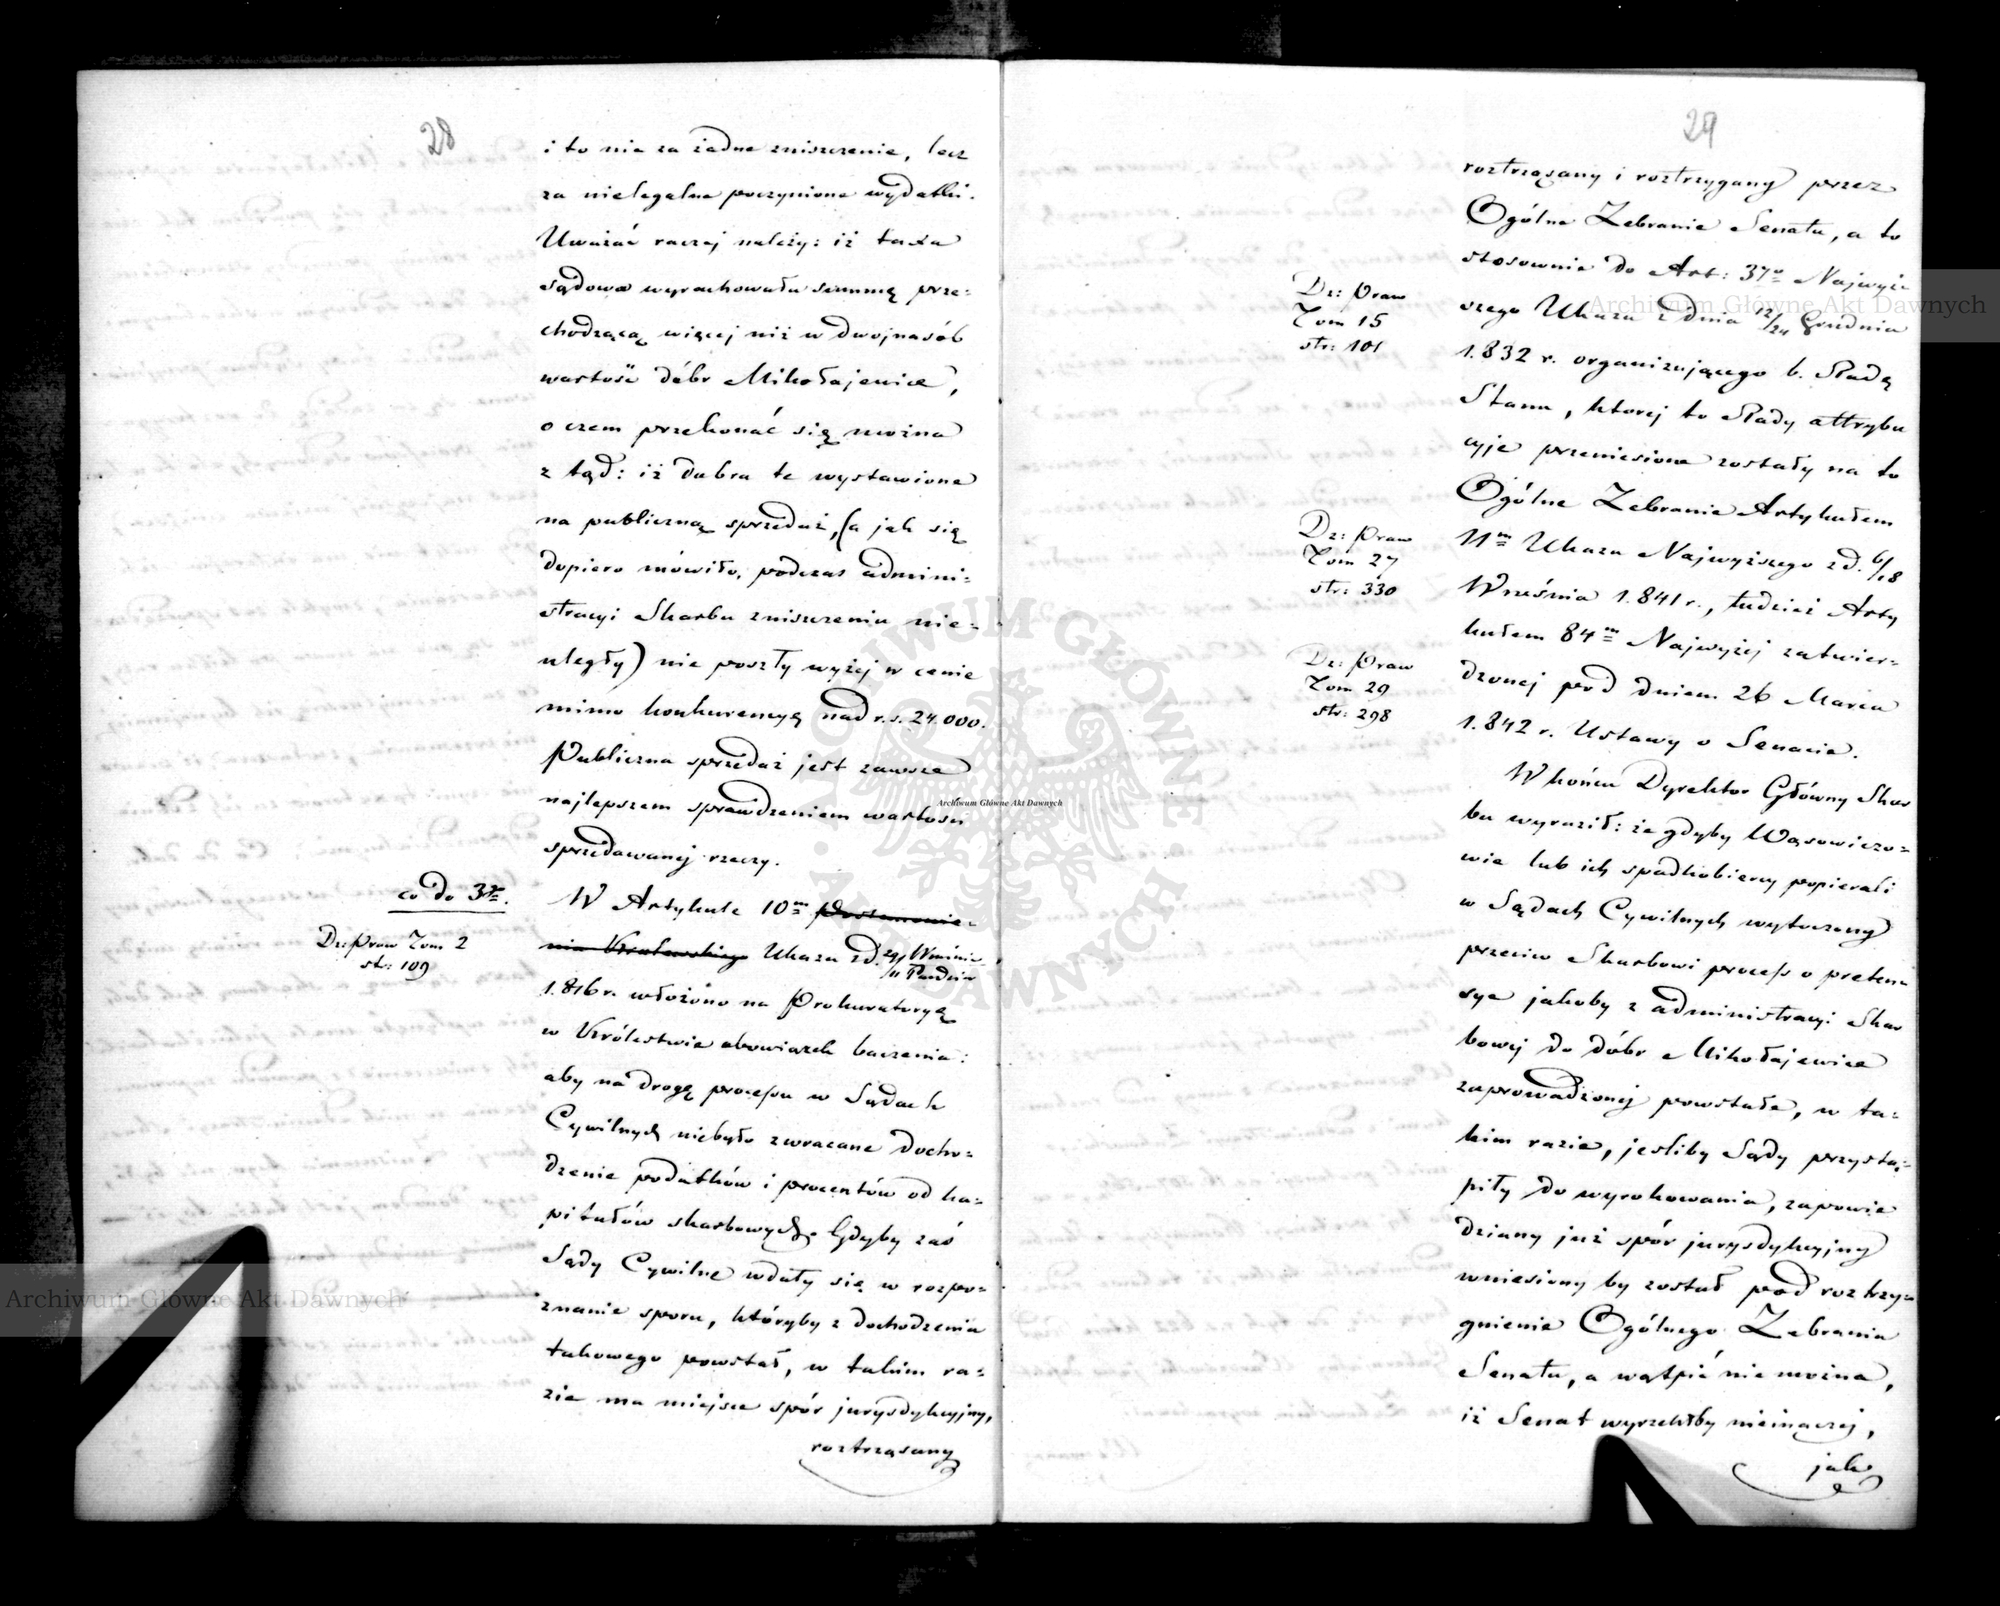 28
i to nie za żadne zniszczenie, lecz
za nielegalne poczynione wydatki.
Uważać raczej należy: iż taxa
sądowa wyrachowała summę prze-
chodzącą więcej niż w dwójnasób
wartość dóbr Mikołajewice,
o czem przekonać się można
z tąd: iż dobra te wystawione
na publiczną sprzedaż, (a jak się
dopiero mówiło, podczas admini-
stracyi Skarbu zniszczeniu nie-
uległy) nie poszły wyżej w cenie
mimo konkurencyą nad r.s. 24.000.
Publiczna sprzedaż jest zawsze
najlepszem sprawdzeniem wartości
sprzedawanej rzeczy.
co do 3go.
Dz: Praw Tom 2
str: 109
W Artykule 10m Postanowie-
nia Królewskiego Ukazu z d. 29/11 Września Paździer
1.816 r. włożono na Prokuratoryą
w Królestwie obowiązek baczenia:
aby na drogę processu w Sądach
Cywilnych niebyło zwracane docho-
dzenie podatków i procentów od ka-
pitałów skarbowych. Gdyby zaś
Sądy Cywilne wdały się w rozpo-
znanie sporu, któryby z dochodzenia
takowego powstał, w takim ra-
zie ma miejsce spór jurysdykcyjny,
roztrząsany
29
roztrząsany i roztrzygany przez
Ogólne Zebranie Senatu, a to
stosownie do Art: 37o Najwyż
szego Ukazu z dnia 12/24 Grudnia
1.832 r. organizującego b. Radę
Stanu, której to Rady attrybu
cyje przeniesione zostały na to
Ogólne Zebranie Artykułem
11m Ukazu Najwyższego z d. 6/18
Września 1.841 r., tudzież Arty
kułem 84m Najwyżej zatwier-
dzonej pod dniem 26 Marca
1.842 r. Ustawy o Senacie.
Dz: Praw
Tom 15
str: 101
Dz: Praw
Tom 27
str: 330
Dz: Praw
Tom 29
str: 298
W końcu Dyrektor Główny Skar
bu wyraził: że gdyby Wąsowiczo-
wie lub ich spadkobiercy popierali
w Sądach Cywilnych wytoczony
przeciw Skarbowi process o preten
sye jakoby z administracyi Skar
bowej do dóbr Mikołajewice
zaprowadzonej powstałe, w ta-
kim razie, jesliby Sądy przystą-
piły do wyrokowania, zapowie
dziany już spór jurysdykcyjny
wniesiony by został pod roztrzy-
gnienie Ogólnego Zebrania
Senatu, a wątpić nie można,
iż Senat wyrzekłby nieinaczej,
jak
Archiwum Główne Akt Dawnych
Archiwum Główne Akt Dawnych
Archiwum Główne Akt Dawnych
ARCHIWUM GŁÓWNE
AKT DAWNYCH